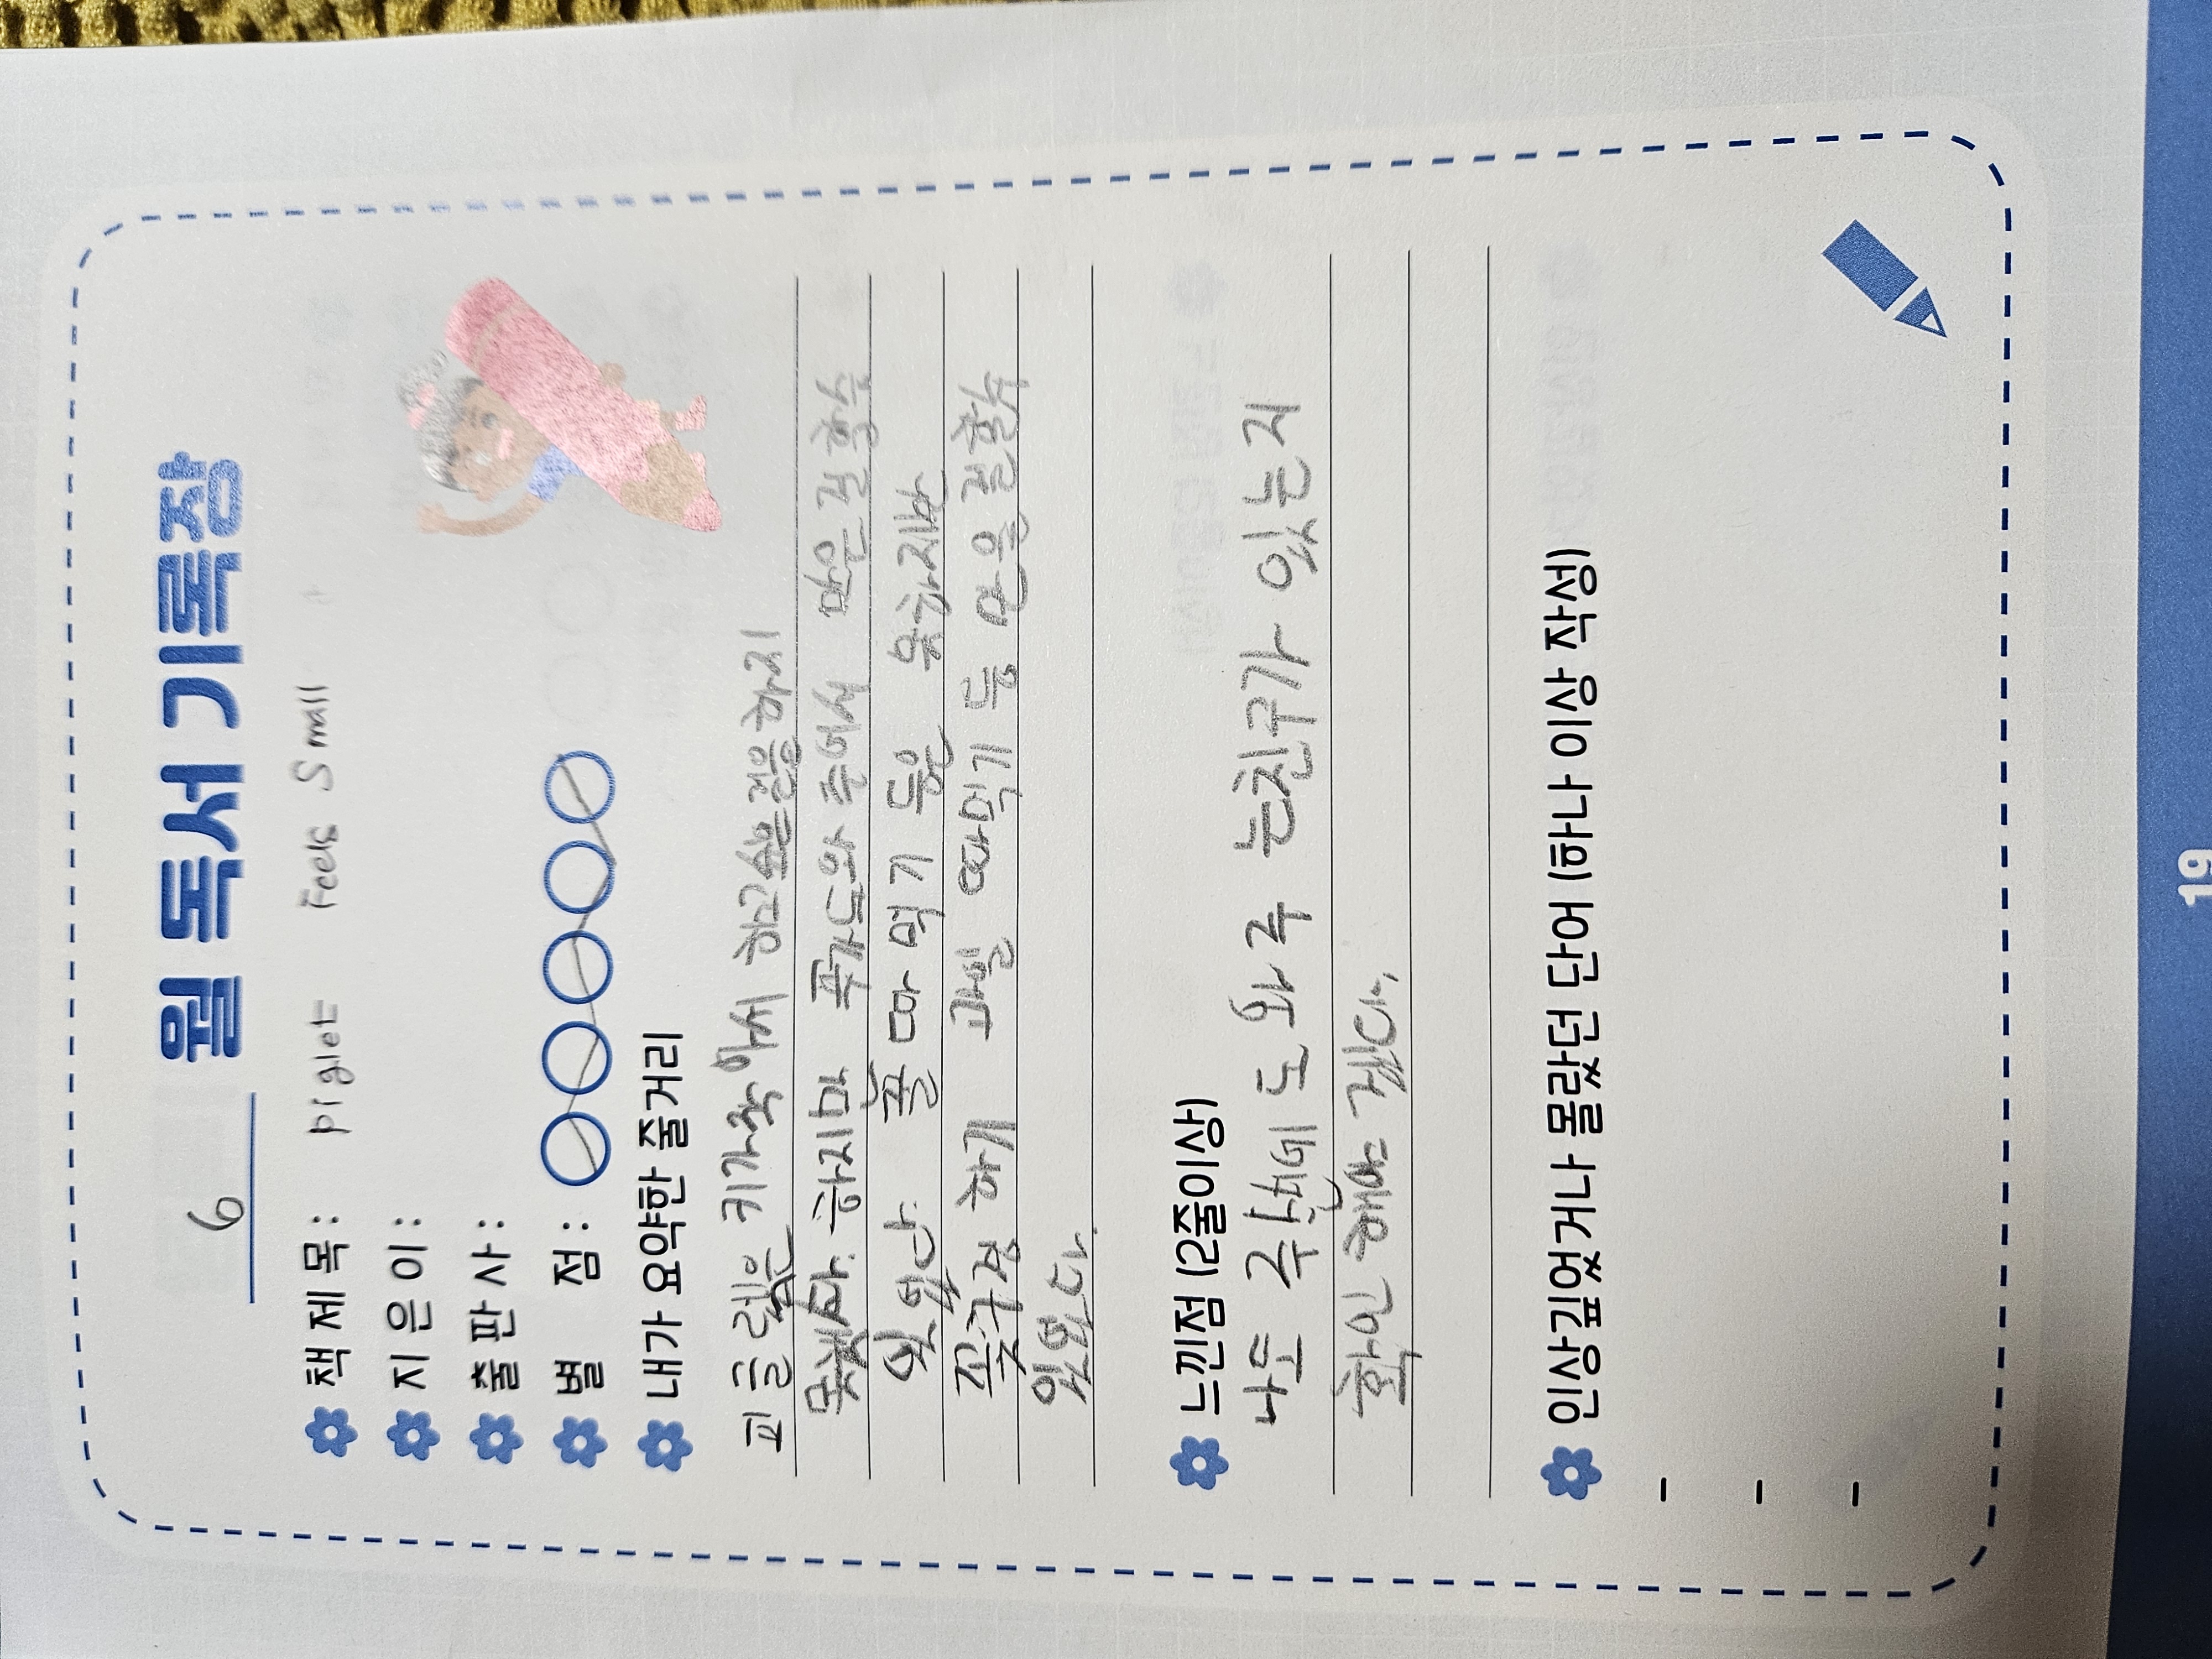 6 월 독서 기록장
책 제 목 : piglet Feels Small
지 은 이 :
출 판 사 :
별 점 :
내가 요약한 줄거리
피글렛은 키가작아서 하고싶은건을하지
못했다. 하지마 푸가도와주어서 많은걸할수
있었다. 꿀따먹기 등은 못하지만
과일 따먹기 등 만을걸할수
있었다.
느낀점 (2줄이상)
나는 주변에 도와주는친구가 있는지
확인해야 겠다.
인상깊었거나 몰랐던 단어 (하나 이상 작성)
-
-
-
19